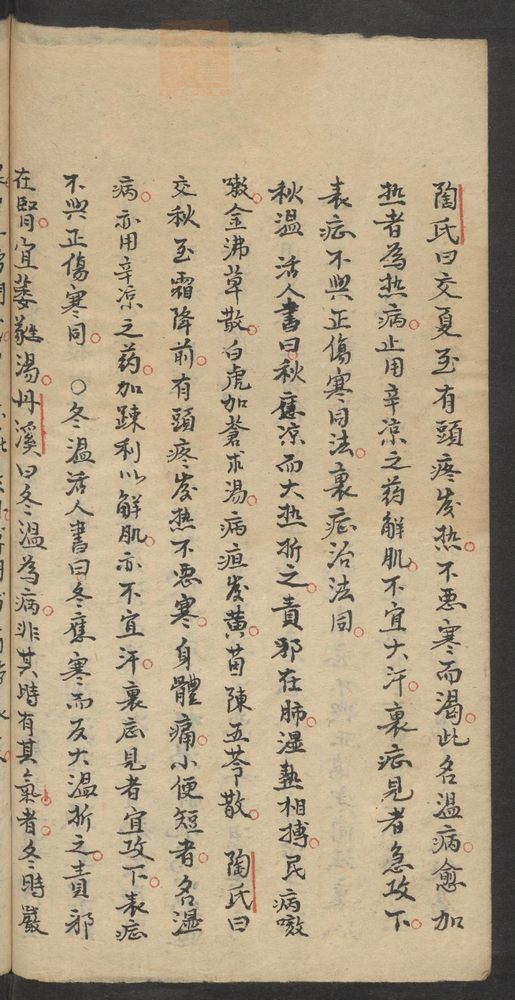 陶氏曰交夏至有頭疼发热不悪寒而渴此名温病愈加
热者為热病止用辛凉之药解肌不宜大汗裏症見者急攻下
表症不與正傷寒同法裏症治法同
秋温　活人書曰秋應凉而大热折之責邪在肺湿熱相搏民病咳
嗽金沸草散白虎加蒼朮湯病疸发黄茵陳五苓散　陶氏曰
交秋至霜降前有頭疼发热不悪寒身體痛小便短者名湿
病亦用辛凉之药加踈利以解肌亦不宜汗裏症見者宜攻下表症
不與正傷寒同　○冬温活人書曰冬應寒而反大温折之責邪
在腎宜萎蕤湯丹溪曰冬温為病非其時有其氣者冬時嚴